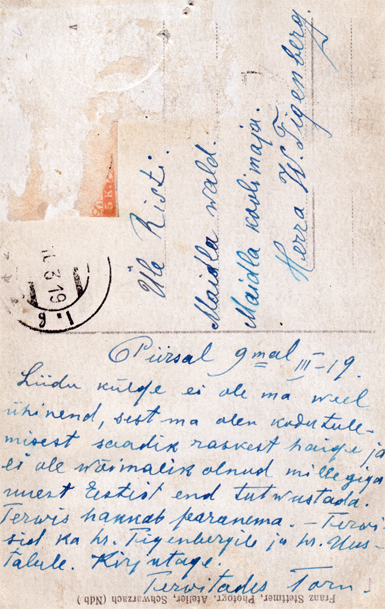 Üle Risti.
Maidla wald.
Maidla koolimaja.
Herra W. Tigenberg.
Piirsal 9mal III–19.
Liidu külge ei ole ma weel
ühinend, sest ma olen kodutule-
misest saadik raskest haige ja
ei ole wõimalik olnud millegiga
uuest Eestist end tutwustada.
Terwis hakkab paranema. – Terwi-
sid ka hr. Tigenbergile ja hr. Uus-
talule. Kirjutage.
Terwitades Torn
Franz Stettmer, Photogr. Atelier, Schwarzach (Ndb.)